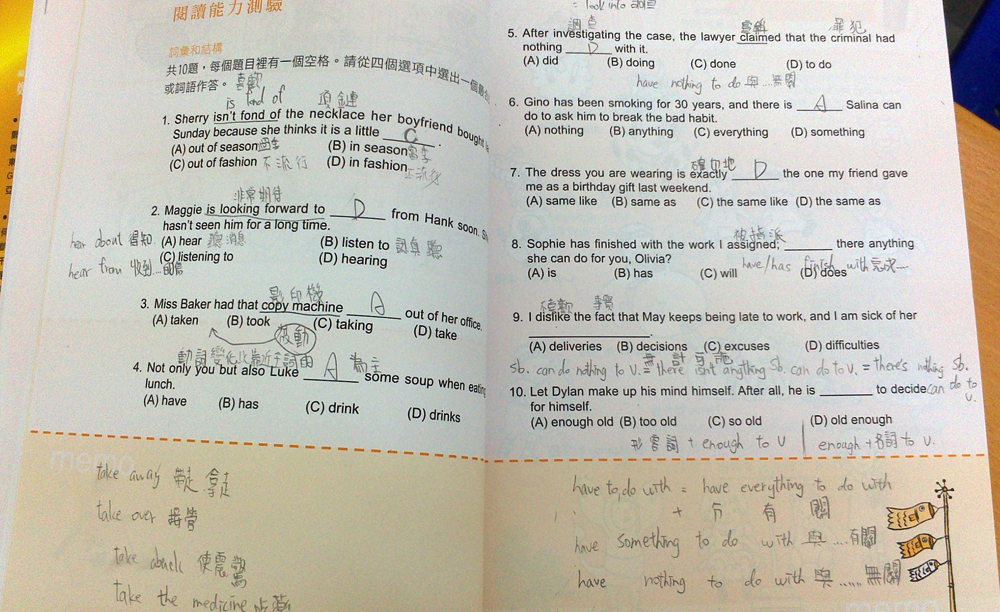 閱讀能力測驗
詞彙和結構
共10題，每個題目裡有一個空格。請從四個選項中選出一個最
或詞語作答。 喜歡
is fond of 項鏈
1. Sherry isn't fond of the necklace her boyfriend bought
Sunday because she thinks it is a little C .
(A) out of season (B) in season 當季
(C) out of fashion 不流行 (D) in fashion
非常期待
2. Maggie is looking forward to D from Hank soon. S
hasn't seen him for a long time.
hear about 得知 (A) hear 聽消息 (B) listen to 認真聽
hear from 收到... (C) listening to (D) hearing
影印機
3. Miss Baker had that copy machine A out of her office.
(A) taken (B) took (C) taking (D) take
被動
動詞變化比靠近主詞的 為主
4. Not only you but also Luke A some soup when eating
lunch.
(A) have (B) has (C) drink (D) drinks
take away 帶走 拿走
take over 接管
take aback 使震驚
take the medicine
= look into 調查
調查 宣稱 罪犯
5. After investigating the case, the lawyer claimed that the criminal had
nothing D with it.
(A) did (B) doing (C) done (D) to do
have nothing to do 與...無關
6. Gino has been smoking for 30 years, and there is A Salina can
do to ask him to break the bad habit.
(A) nothing (B) anything (C) everything (D) something
確切地
7. The dress you are wearing is exactly D the one my friend gave
me as a birthday gift last weekend.
(A) same like (B) same as (C) the same like (D) the same as
8. Sophie has finished with the work I assigned; there anything
she can do for you, Olivia?
have/has finish with 完成...
(A) is (B) has (C) will (D) does
9. I dislike the fact that May keeps being late to work, and I am sick of her
.
(A) deliveries (B) decisions (C) excuses (D) difficulties
無計可施
sb. can do nothing to V. = there isn't anything sb. can do to V. = there's nothing sb.
can do to V.
10. Let Dylan make up his mind himself. After all, he is to decide
for himself.
(A) enough old (B) too old (C) so old (D) old enough
形容詞 + enough to V enough + 名詞 to V.
memo
have to do with = have everything to do with
有 關
have something to do with 與....有關
have nothing to do with 與.....無關